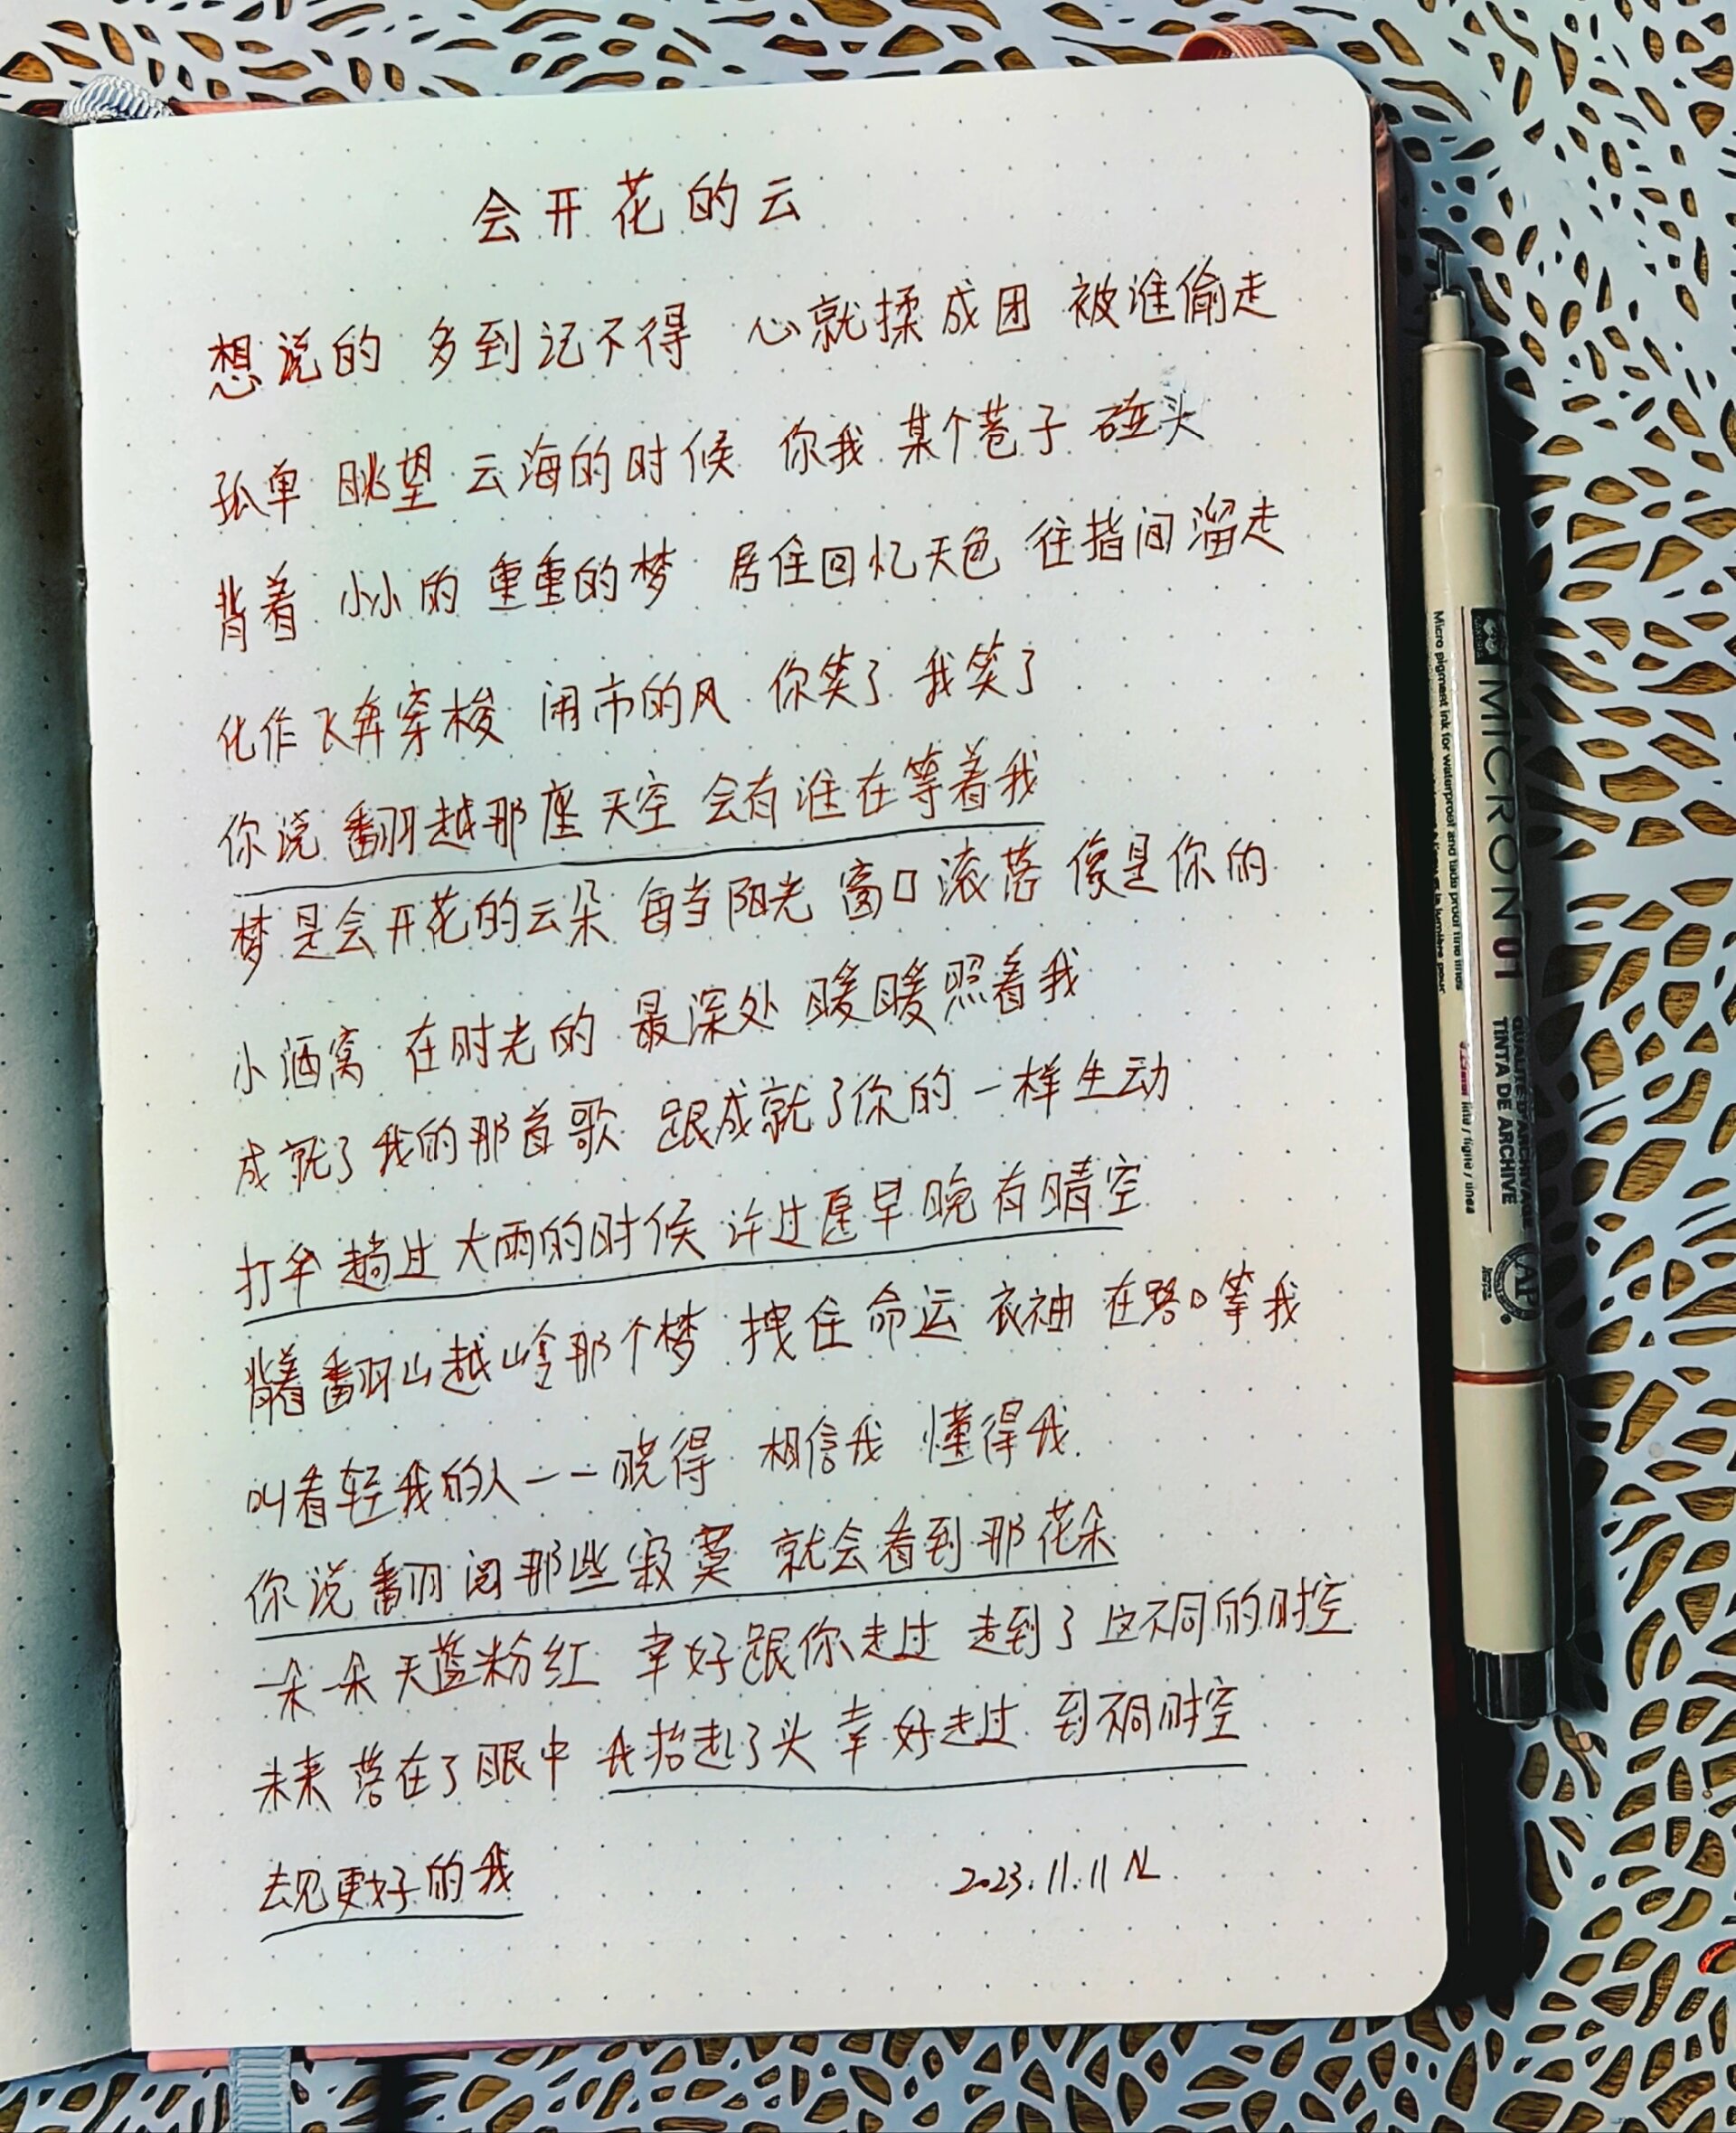 会开花的云
想说的 多到记不得 心就揉成团 被谁偷走
孤单 眺望 云海的时候 你我 某个巷子 碰头
背着 小小的 重重的梦 居住回忆天色 往指间溜走
化作飞奔穿梭 闹市的风 你笑了 我笑了
你说 翻越那座天空 会有谁在等着我
梦是会开花的云朵 每当阳光 窗口滚落 像是你的
小酒窝 在时光的 最深处 暖暖照着我
成就了我的那首歌 跟成就了你的 一样生动
打伞 趟过 大雨的时候 许过愿早晚有晴空
背着翻山越岭那个梦 拽住命运 衣袖 在路口等我
叫看轻我的人一一晓得 相信我 懂得我
你说翻阅那些寂寞 就会看到那花朵
一朵一朵 天蓝粉红 幸好跟你走过 走到了这不同的时空
未来 落在了眼中 我抬起了头 幸好走过 到不同时空
去见更好的我
2023.11.11 NL
MICRON 01
Micro pigment ink for waterproof and fade proof fine lines
QUALITE D'ARCHIVAGE
TINTA DE ARCHIVE
line / ligne / linea
AP